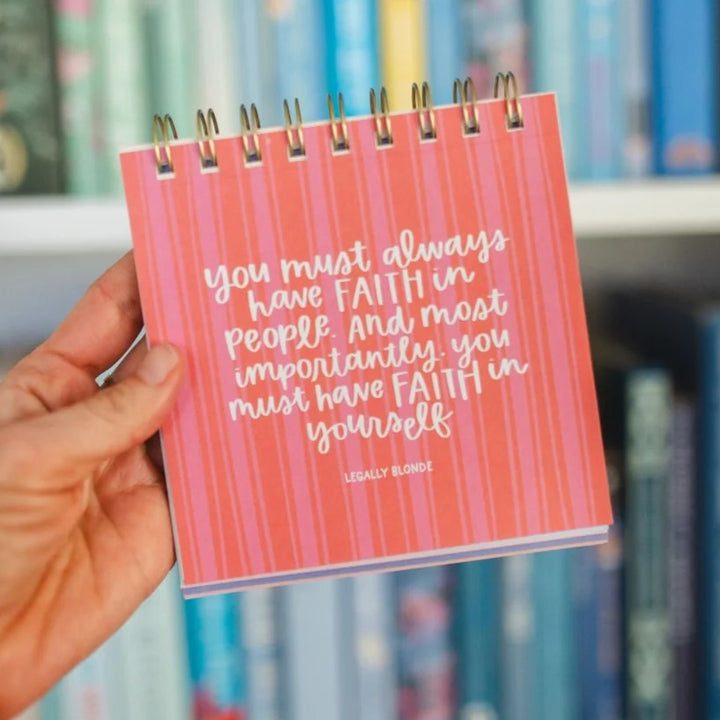 you must always
have FAITH in
people. And most
importantly. you
must have FAITH in
yourself
LEGALLY BLONDE